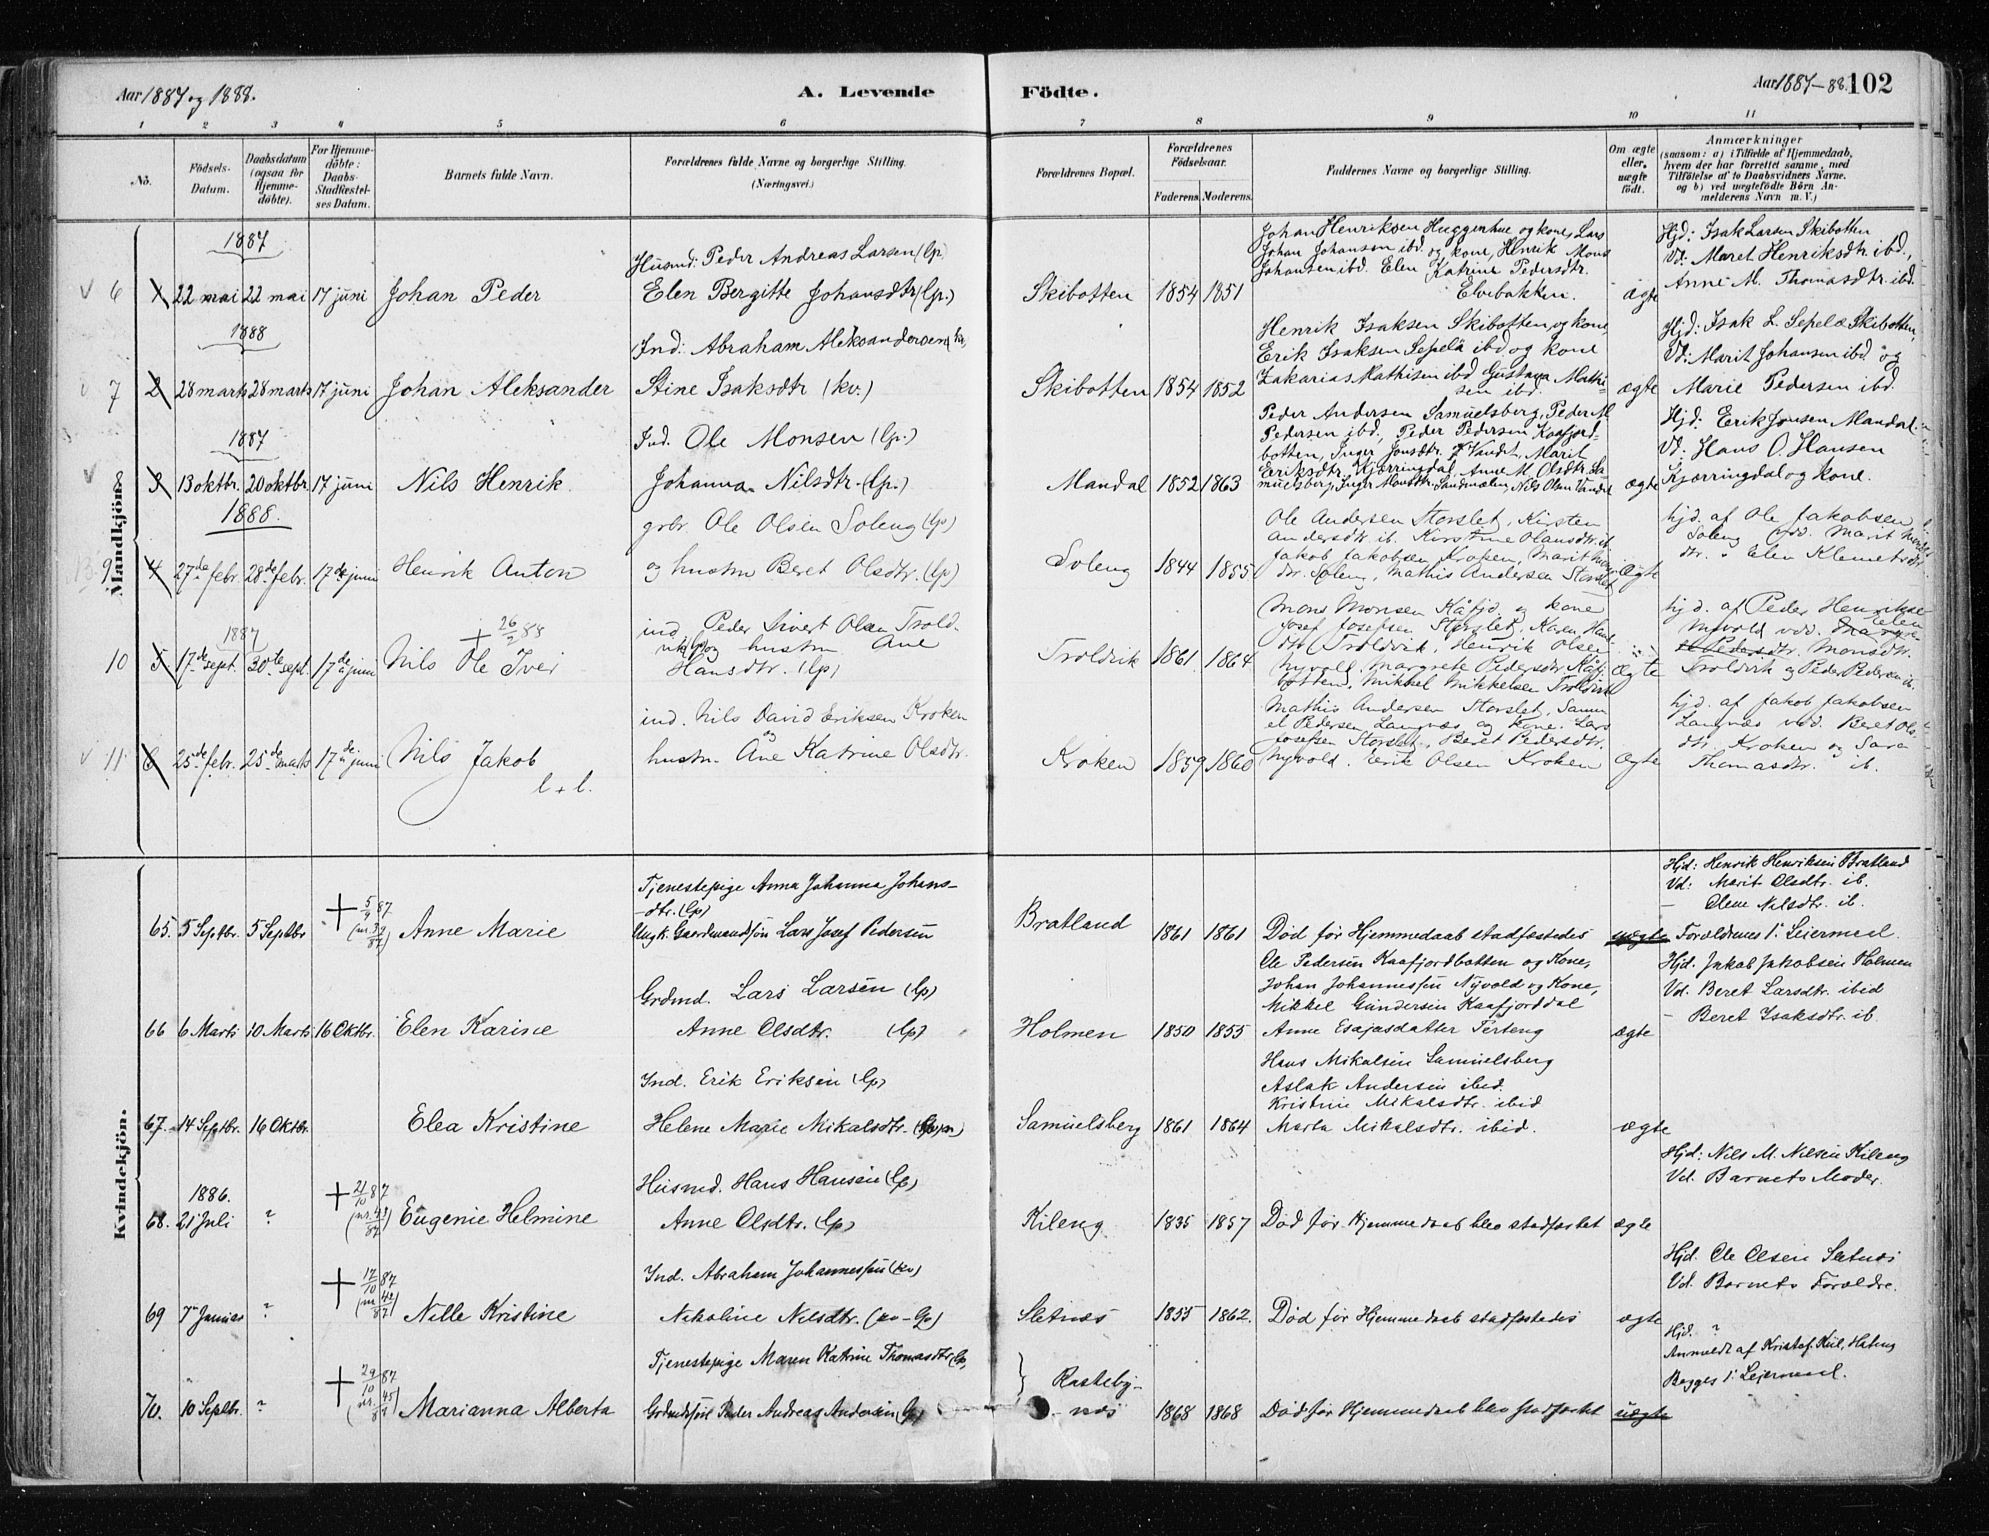 Aar 1887 og 1888.
A. Levende
Födte.
Aar 1887-88. 102
1 2 3 4 5 6 7 8 9 10 11
No.
Födsels-Datum.
Daabsdatum (ogsaa for Hjemme-döbte).
For Hjemme-döbte: Daabs-Stadfæstel-ses Datum.
Barnets fulde Navn.
Forældrenes fulde Navne og borgerlige Stilling.
(Næringsvei.)
Forældrenes Bopæl.
Forældrenes Födselsaar.
Faderens. Moderens.
Faddernes Navne og borgerlige Stilling.
Om ægte eller uægte födt.
Anmærkninger
(saasom: a) i Tilfælde af Hjemmedaab,
hvem der har forrettet samme, med
Tilföielse af to Daabsvidners Navne.
og b) ved uægtefödte Börn An-
melderens Navn m. V.)
Mandkjön.
1887
6 1 22 mai 22 mai 17 juni Johan Peder
Husmd: Peder Andreas Larsen (lp)
Elen Bergitte Johansdtr (lp.)
Skibotten 1854 1851
Johan Henriksen Huggenhue og kone, Lars
Johan Johansen ibd. og kone, Henrik Mons
Johansen ibd. Elen Katrine Pedersdtr.
Elvebakken.
ægte
Hjd: Isak Larsen Skibotten
Vd: Maret Henriksdtr ibd.,
Anne M. Thomasdtr. ibd.
1888
7 2 28 marts 28 marts 17 juni Johan Aleksander
Ind: Abraham Aleksandersen (kv)
Stine Isaksdtr (kv.)
Skibotten 1854 1852
Henrik Isaksen Skibotten og kone
Erik Isaksen Sepelä ibd og kone
Zakarias Mathisen ibd Gustava Mathi-
sen ibd.
ægte
Hjd: Isak L. Sepelæ Skibotten,
Vd: Marit Johansen ibd og
Marie Pedersen ibd.
1887
8 3 13 oktbr. 20 oktbr. 17 juni Nils Henrik.
Ind. Ole Monsen (lp.)
Johanna Nilsdtr. (lp.)
Mandal 1852 1863
Peder Andersen Samuelsberg, Peder M
Pedersen ibd., Peder Pedersen Kaafjord-
botten, Inger Jonsdtr. Vandet, Marit
Eeriksdtr. Kjærringdal, Anne M. Olsdtr. Sa-
muelsberg, Inger Monsdtr. Sandmælen, Nils Olsen Vandet
ægte
Hjd: Erik Jonsen Mandal
Vd: Hans O. Hansen
Kjærringdal og kone.
1888.
9 4 27de febr. 28de febr. 17de juni Henrik Anton
grbr. Ole Olsen Soleng (lp)
og hustru Beret Olsdtr. (lp)
Soleng 1844 1855
Ole Andersen Storslet, Kirsten
Andersdtr ib. Kirstine Hansdtr. ib
Jakob Jakobsen Kroken, Marit
dtr. Soleng, Mathis Andersen Storslet
Ægte
hjd. af Ole Jakobsen
Soleng vdd. Marit
dtr. " Elen Klemetsdtr
1887
10 5 17de sept. 30te sept. 17de juni Nils Ole Iver
+ 26/2 88
ind. Peder Sivert Olsen Trold-
vik (lp) og hustru Ane
Hansdtr. (lp)
Troldvik 1861 1864
Mons Monsen Kåfjd. og kone
Josef Josefsen Storslet, Karen
dtr Troldvik, Henrik Olsen
Nyvold, Margrete Pedersdtr. Kåfj.
botten, Mikkel Mikkelsen Troldvik
Ægte
hjd. af Peder Henriksen
Nyvold vdd. Elen
Pedersdtr. Monsdtr.
Troldvik og Peder Pedersen ib.
11 6 25de febr. 25de marts 17de juni Nils Jakob
l + l.
ind. Nils David Eriksen Kroken
og
hustru Ane Katrine Olsdtr.
Kroken 1859 1860
Mathis Andersen Storslet, Samu-
el Pedersen Langnæs og kone. Lars
Josefsen Storslet, Beret Pedersdtr.
Nyvold. Erik Olsen Kroken
Ægte
hjd. af Jakob Jakobsen
Langnæs vdd. Beret Ols-
dtr. Kroken og Sara
Thomasdtr. ib.
Kvindekjön.
65. 5 Septbr. 5 Septbr + 5/9 87 Anne Marie
Tjenestepige Anna Johanna Johans-
-dtr. (lp)
Ungk. Gaardmandssön Lars Josef Pedersen
Bratland 1861 1861 Död för Hjemmedaab stadfæstedes uægte
Hjd: Henrik Henriksen Bratland
Vd: Marit Olsdtr. ib.
— Elene Nilsdtr. ib.
Forældrenes 1ste Leiermaal.
66 6 Marts 10 Marts 16 Oktbr. Elen Karine
Grdmd. Lars Larsen (lp)
Anne Olsdtr. (lp)
Holmen 1850 1855
Ole Pedersen Kaafjordbotten og Kone,
Johan Johannessen Nyvold og Kone,
Mikkel Gundersen Kaafjorddal
Anne Esajasdatter Terteng
ægte
Hjd. Jakob Jakobsen Holmen
Vd. Beret Larsdtr. ibid
— Beret Isaksdtr. ib.
67. 14 Septbr. 16 Oktbr. Elea Kristine
Ind. Erik Eriksen (lp)
Helene Marie Mikalsdtr.
Samuelsberg 1861 1864
Hans Mikalsen Samuelsberg
Aslak Andersen ibid.
Kristine Mikalsdtr. ibid
Marta Mikalsdtr. ibid.
ægte
1886.
68. 21 Juli ? + 21/10 87 (nr. 43/87) Eugenie Helmine
Husmd. Hans Hansen (lp)
Anne Olsdtr. (lp)
Kileng 1835 1857 Död för Hjemmedaab blev stadfæstet ægte
Hjd: Nils M. Nilsen Kileng
Vd. Barnets Moder.
69 7 Januar ? + 17/10 87 (nr 42/87) Nille Kristine
Ind. Abraham Johannessen (kv)
Nikoline Nilsdtr. (kv-lp)
Sletnæs 1855 1862. Död för Hjemmedaab stadfæstedes ægte
Hjd. Ole Olsen Sletnæs
Vd. Barnets Forældre.
70. 10 Septbr. ? + 29/10 87 (nr. 45/87) Marianna Alberta
Tjenestepige Maren Katrine Thomasdtr (lp)
Grdmdssön Peder Andreas Andersen (lp)
Rasteby-
næs 1868 1868 Död för Hjemmedaab blev stadfæstet uægte
Hjd. ?
Anmeldt af Kristof. Kiil, Hateng
Begges 1ste Leiermaal.